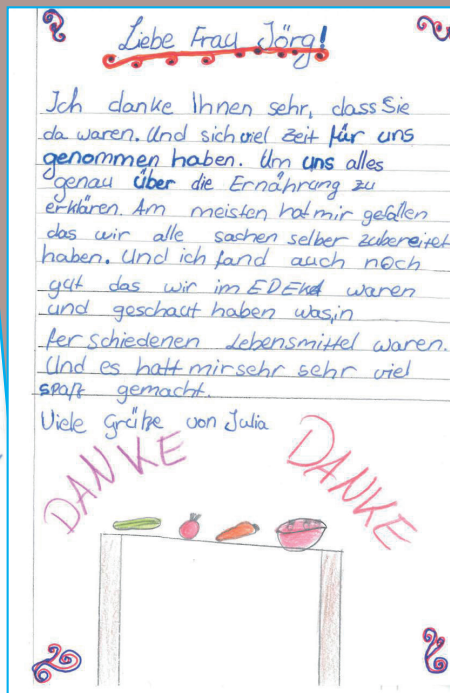 Liebe Frau Jörg!
Ich danke Ihnen sehr, dass Sie
da waren. Und sich viel Zeit für uns
genommen haben. Um uns alles
genau über die Ernährung zu
erklären. Am meisten hat mir gefallen
das wir alle sachen selber zubereitet
haben. Und ich fand auch noch
gut das wir im EDEKA waren
und geschaut haben was in
ferschiedenen Lebensmittel waren.
Und es hatt mir sehr sehr viel
spaß gemacht.
Viele Grüße von Julia
DANKE DANKE